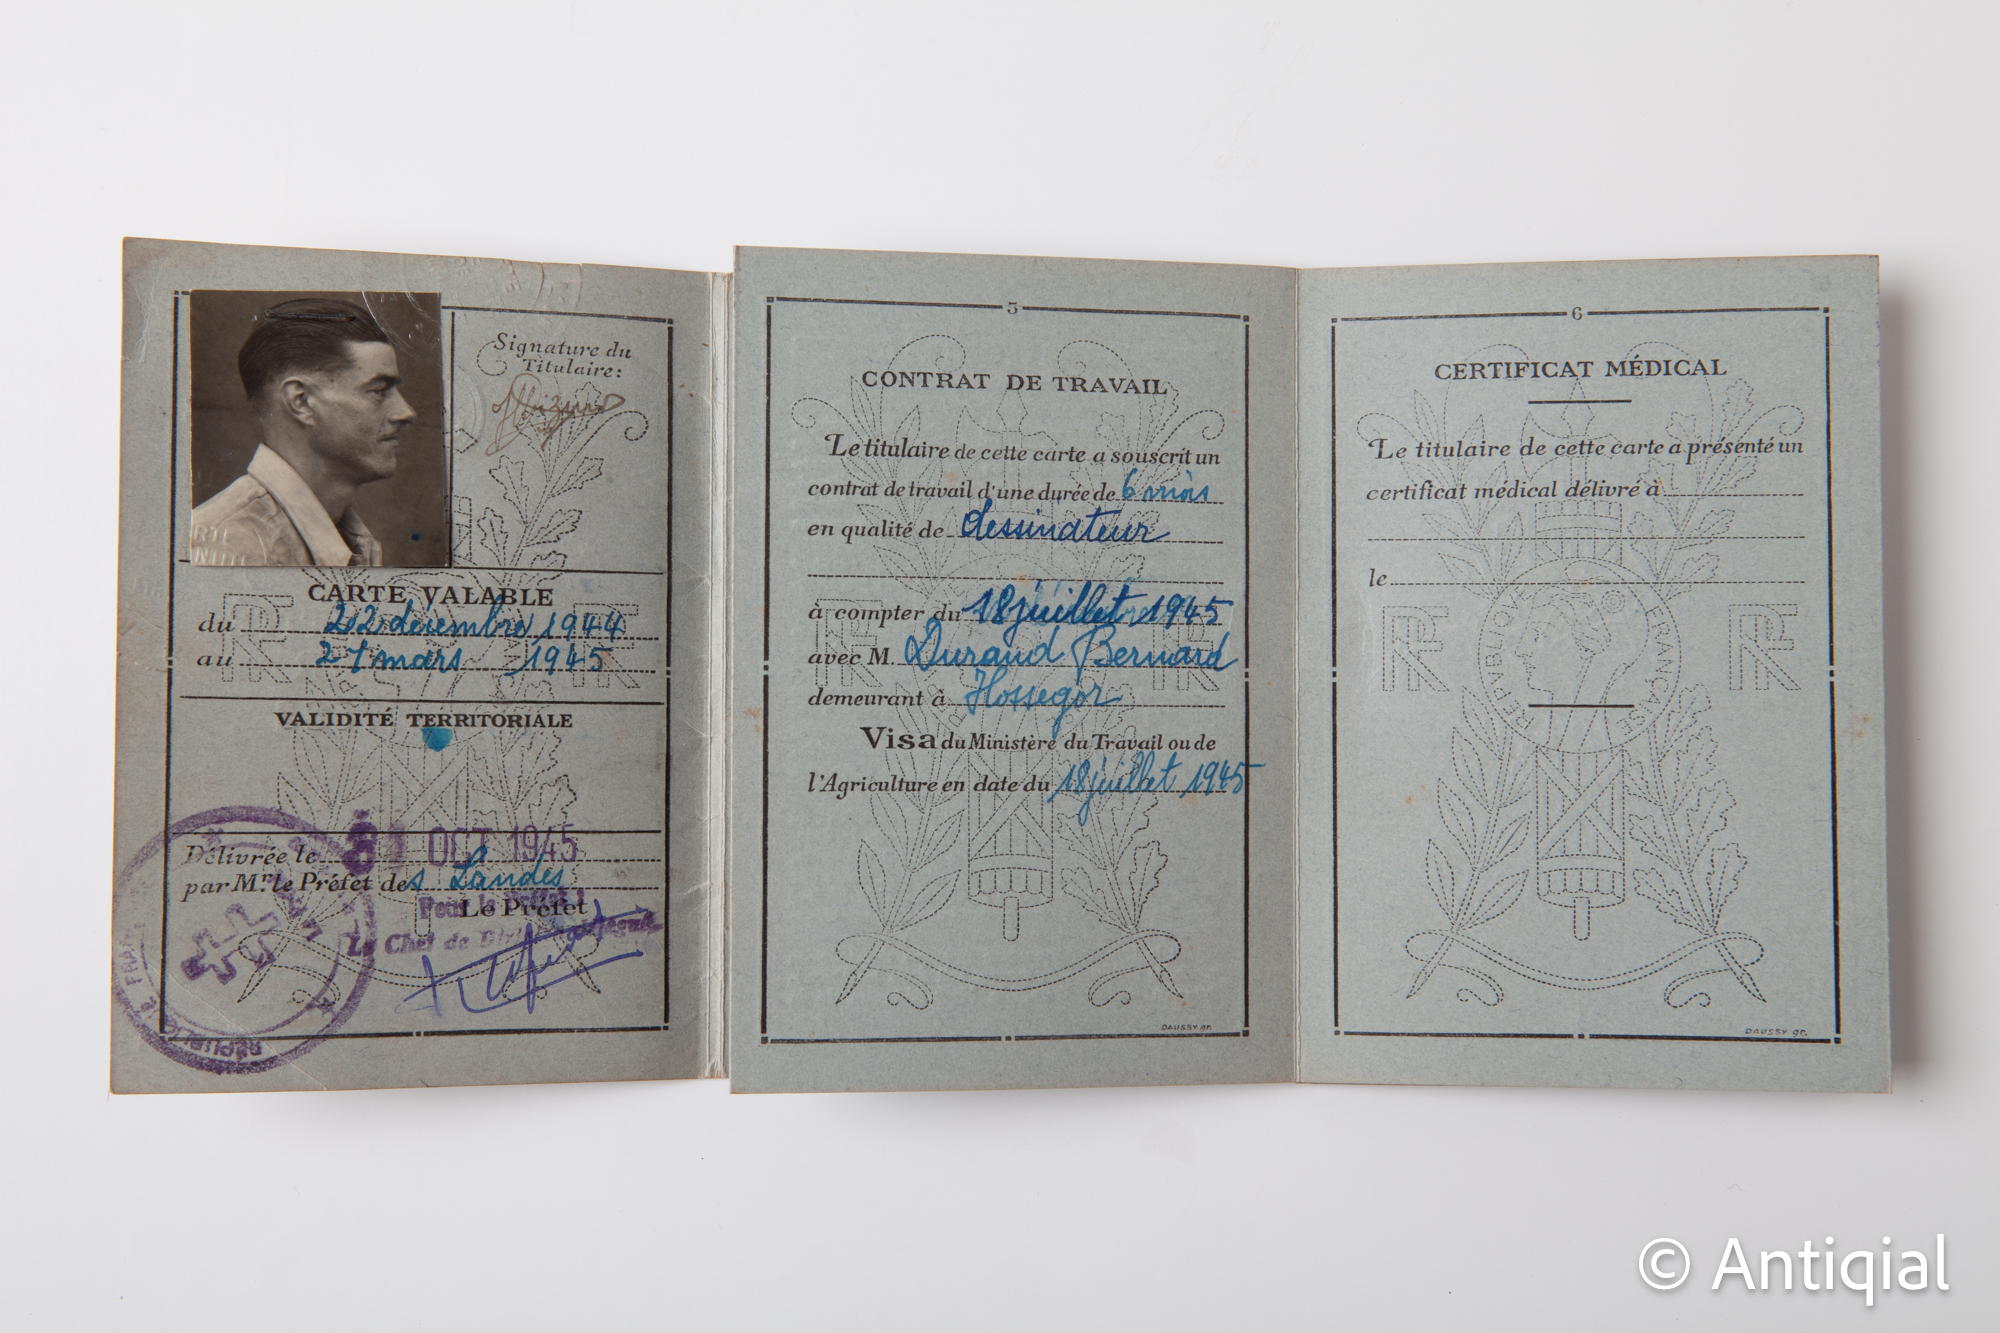 Signature du
Titulaire:
CARTE VALABLE
du 22 décembre 1944
au 21 mars 1945
VALIDITÉ TERRITORIALE
OCT 1945
Délivrée le
par Mr. le Préfet des Landes
Pour le Préfet
Le Préfet
Le Chef de Division délégué
RÉPUBLIQUE FRAN
5
CONTRAT DE TRAVAIL
Le titulaire de cette carte a souscrit un
contrat de travail d'une durée de 6 mois
en qualité de dessinateur
à compter du 18 juillet 1945
avec M. Durand Bernard
demeurant à Hossegor
Visa du Ministère du Travail ou de
l'Agriculture en date du 18 juillet 1945
DAUSSY gr.
6
CERTIFICAT MÉDICAL
Le titulaire de cette carte a présenté un
certificat médical délivré à
le
RF
REPVBLIQVE FRANÇAISE
RF
DAUSSY gr.
© Antiqial